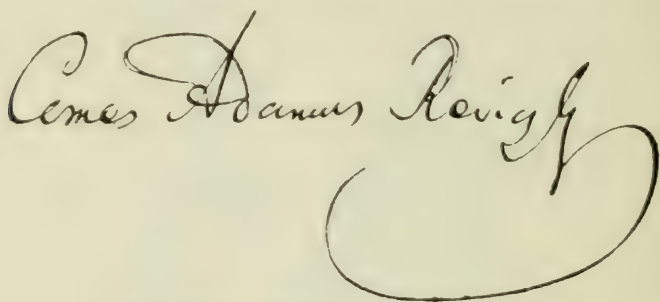 Comes Adamus Reviczky